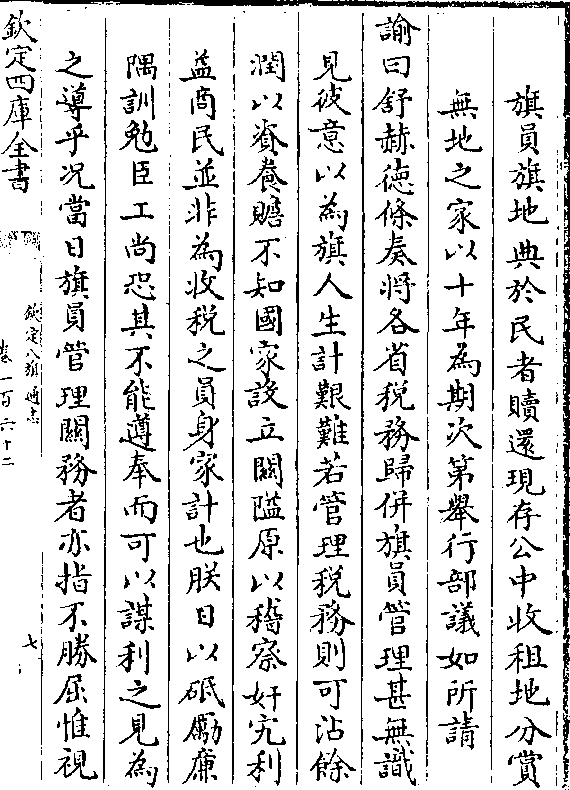 旗員旗地典於民者贖還現存公中收租地分賞
無地之家以十年為期次第舉行部議如所請
諭曰舒赫德條奏將各省稅務歸併旗員管理甚無識
見彼意以為旗人生計艱難若管理稅務則可沾餘
潤以資養贍不知國家設立關隘原以稽察奸宄利
益商民並非為收稅之員身家計也朕日以砥勵廉
隅訓勉臣工尚恐其不能遵奉而可以謀利之見為
之導乎况當日旗員管理關務者亦指不勝屈惟視
欽定四庫全書
欽定八旗通志
卷一百六十二
七